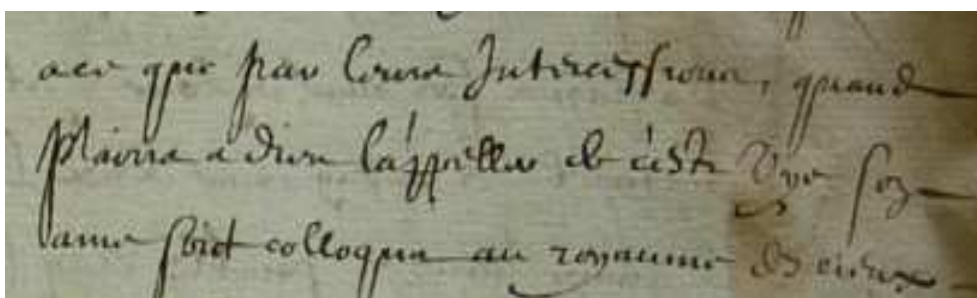 ace que par leurs Intercessions, quand
plaira a dieu l'appeller de ceste vye son
ame soit colloquee au royaume des cieux